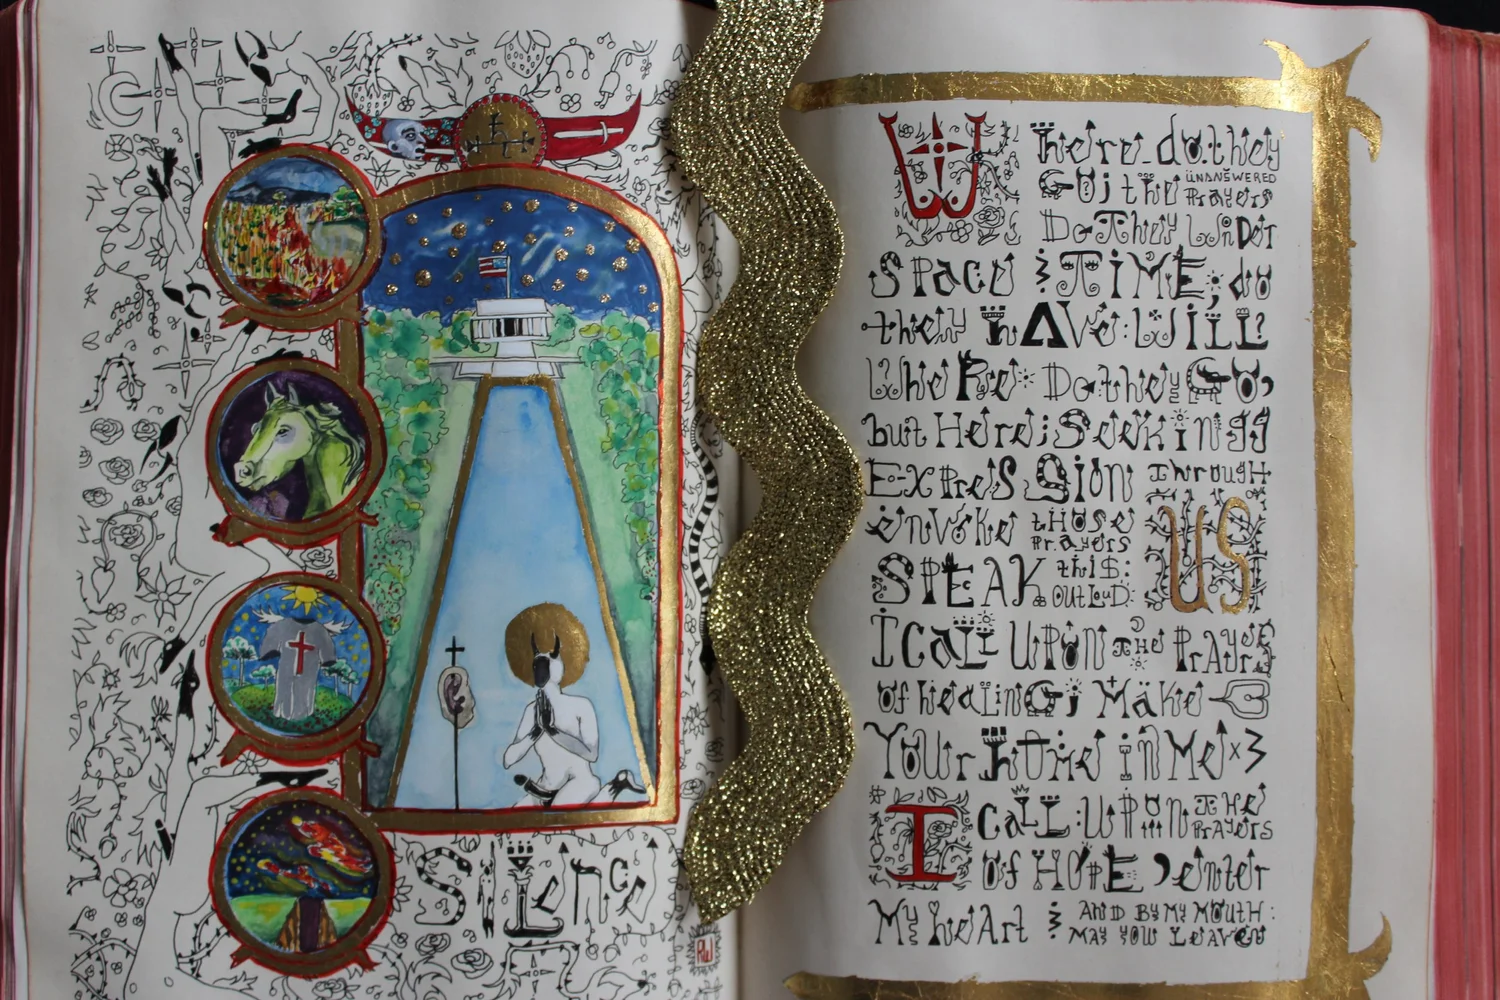 Silence
RW
Where do they
Go; the UNANSWERED
Prayers
Do They Wander
Space & TiME, do
they hAve: WiLL?
Where Do they Go,
but Here; Seeking
ExpresSion Through
US
invoke those
Prayers
SPEAK this:
OutLouD:
I CaLL UPON THE PrAyers
of healinG; Make
Your home in Me
I CaLL: UPON THE
PrAyers
of HOPE, enter
My heArt & AND BY MY MOUTH:
MAY YOU LEAVe